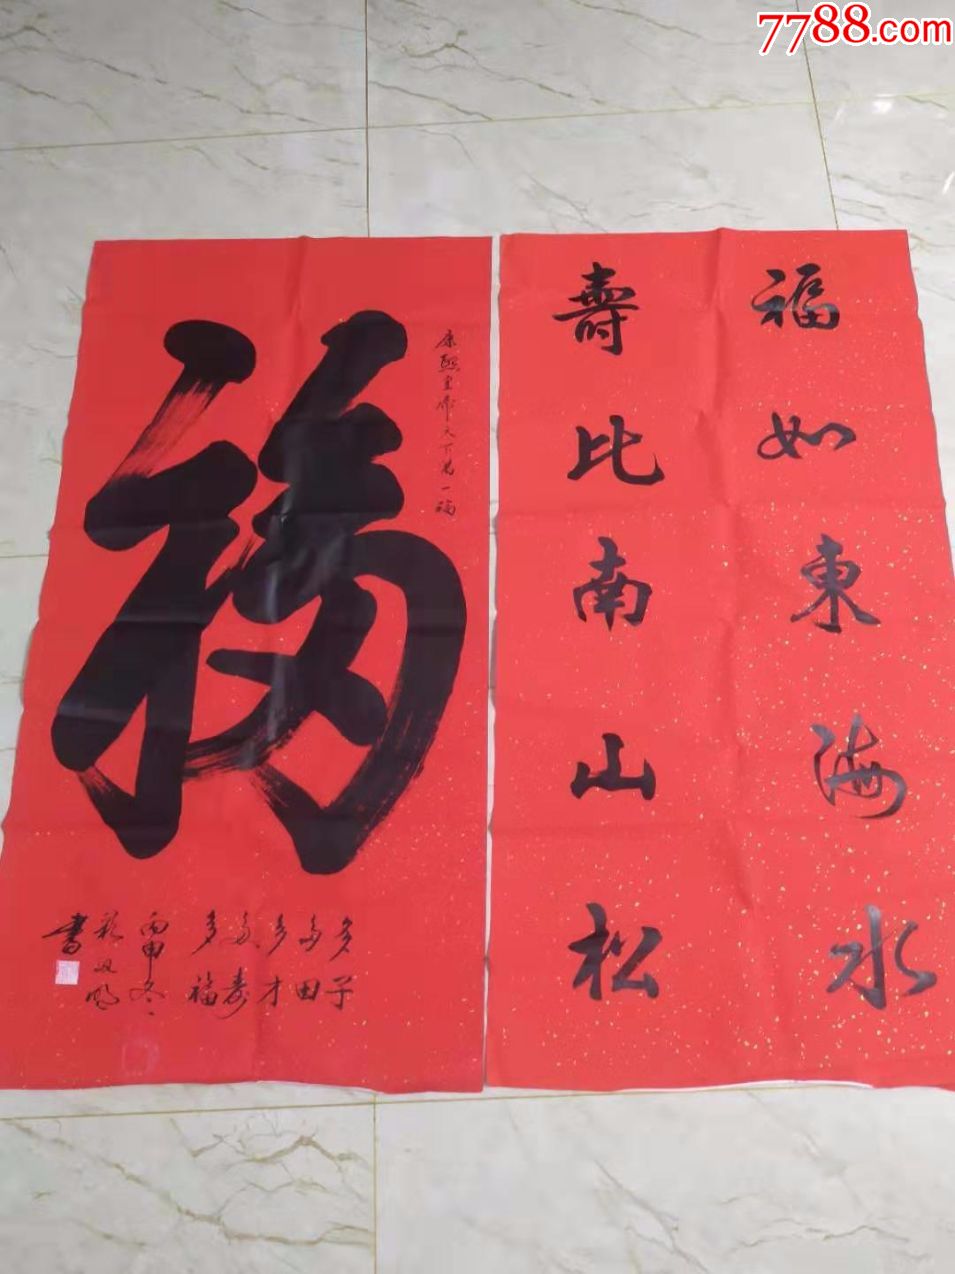 7788.com
福
康熙皇帝天下第一福
多子
多田
多才
多壽
多福
丙申冬
書
福如東海水
壽比南山松